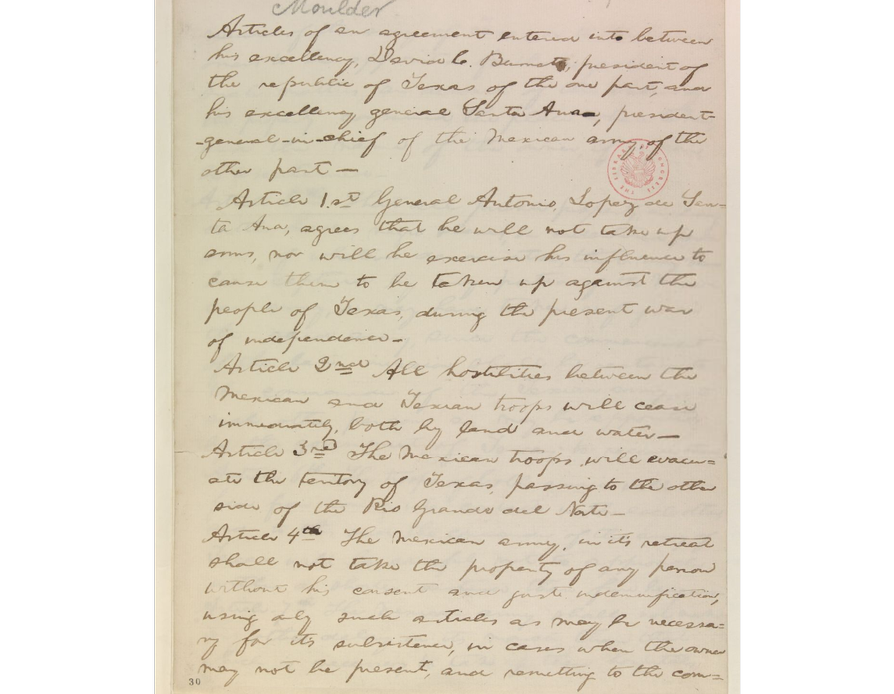 Moulder
Articles of an agreement entered into between
his excellency, David G. Burnet, president of
the republic of Texas of the one part, and
his excellency general Santa Anna, president-
-general-in-chief of the Mexican army, of the
other part —
Article 1.st General Antonio Lopez de San=
ta Ana, agrees that he will not take up
arms, nor will he exercise his influence to
cause them to be taken up against the
people of Texas, during the present war
of independence—
Article 2nd All hostilities between the
Mexican and Texian troops will cease
immediately, both by land and water—
Article 3rd The Mexican troops will evacu=
ate the territory of Texas, passing to the other
side of the Rio Grande del Norte—
Article 4th The Mexican army, in its retreat
shall not take the property of any person
without his consent and just indemnification,
using only such articles as may be necessa=
ry for its subsistence, in cases when the owner
may not be present, and remitting to the com=
30